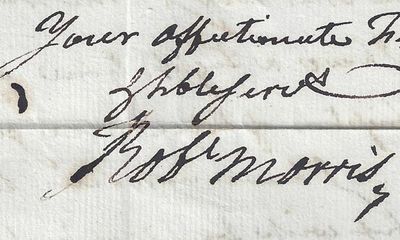 Your affectionate Fr
& hble Servt
Robt Morris